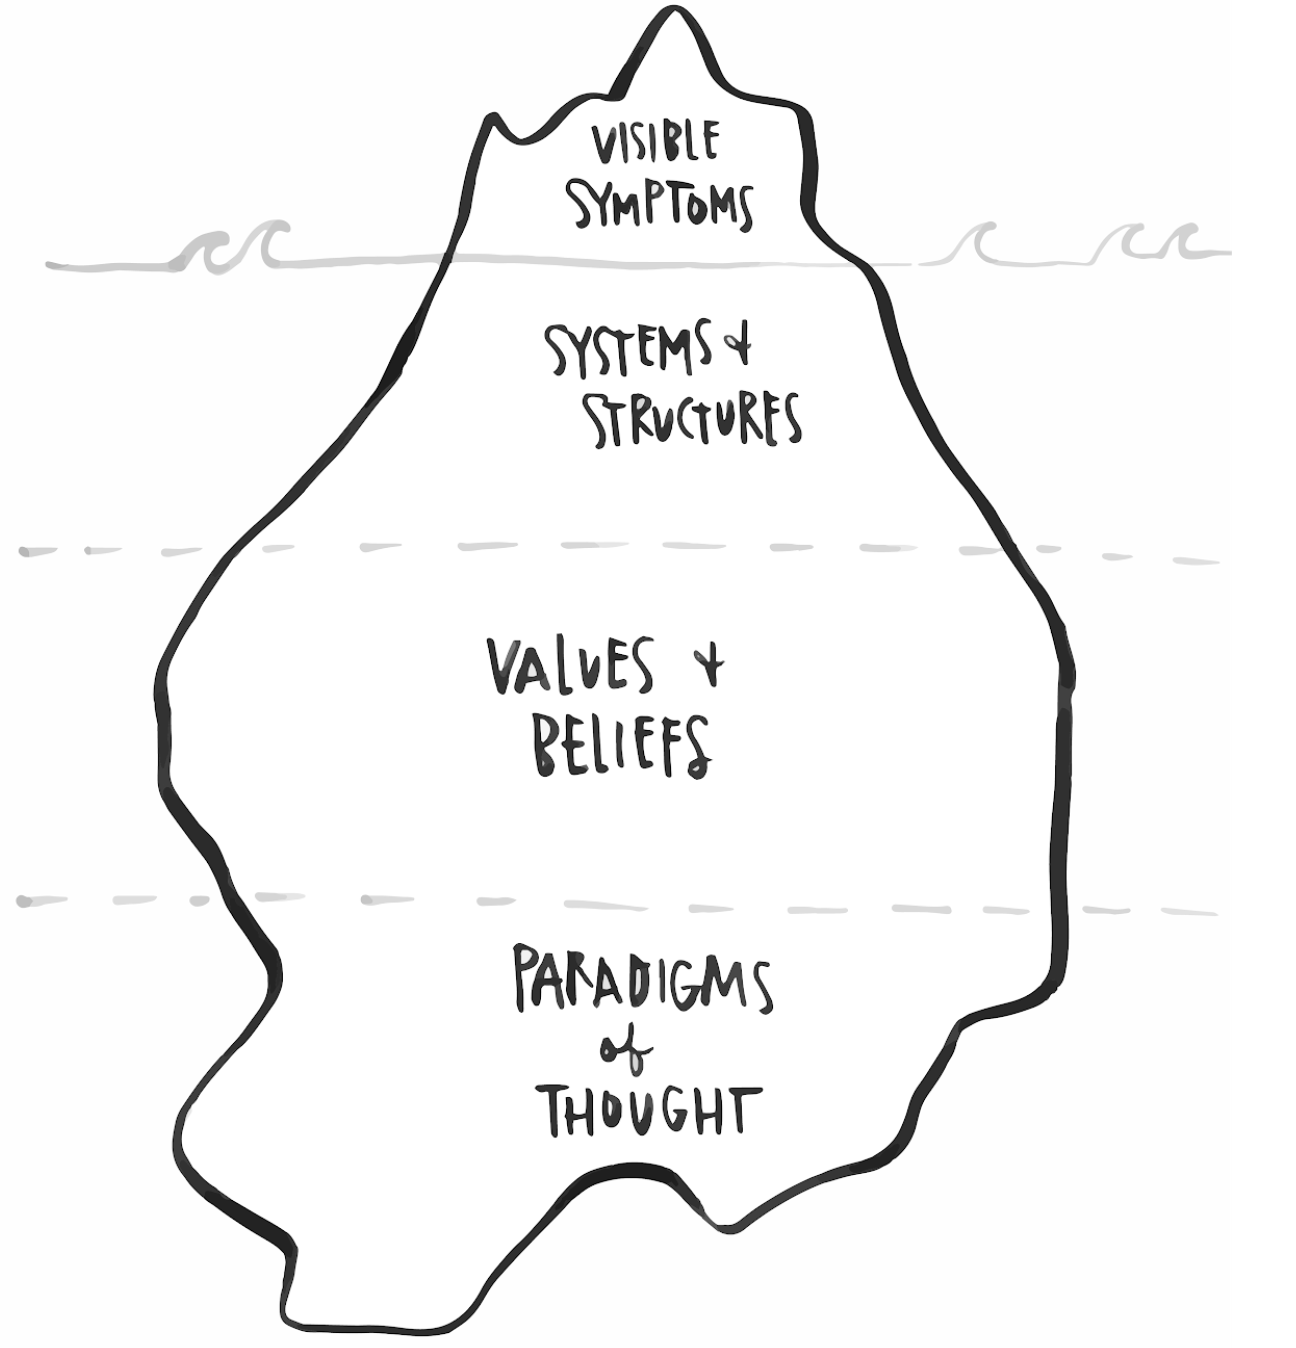 VISIBLE
SYMPTOMS
SYSTEMS &
STRUCTURES
VALUES &
BELIEFS
PARADIGMS
of
THOUGHT